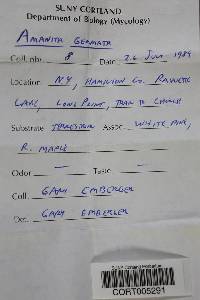 SUNY CORTLAND
Department of Biology (Mycology)
AMANITA GEMMATA
Coll. nbr. 8 Date: 26 JUN 1984
Location NY, HAMILTON CO. RAQUETTE
LAKE, LONG POINT, TRAIL TO CHURCH
Substrate TERRESTRIAL Assoc. WHITE PINE,
R. MAPLE
Odor — Taste —
Coll. GARY EMBERGER
Det. GARY EMBERGER
CORT005291